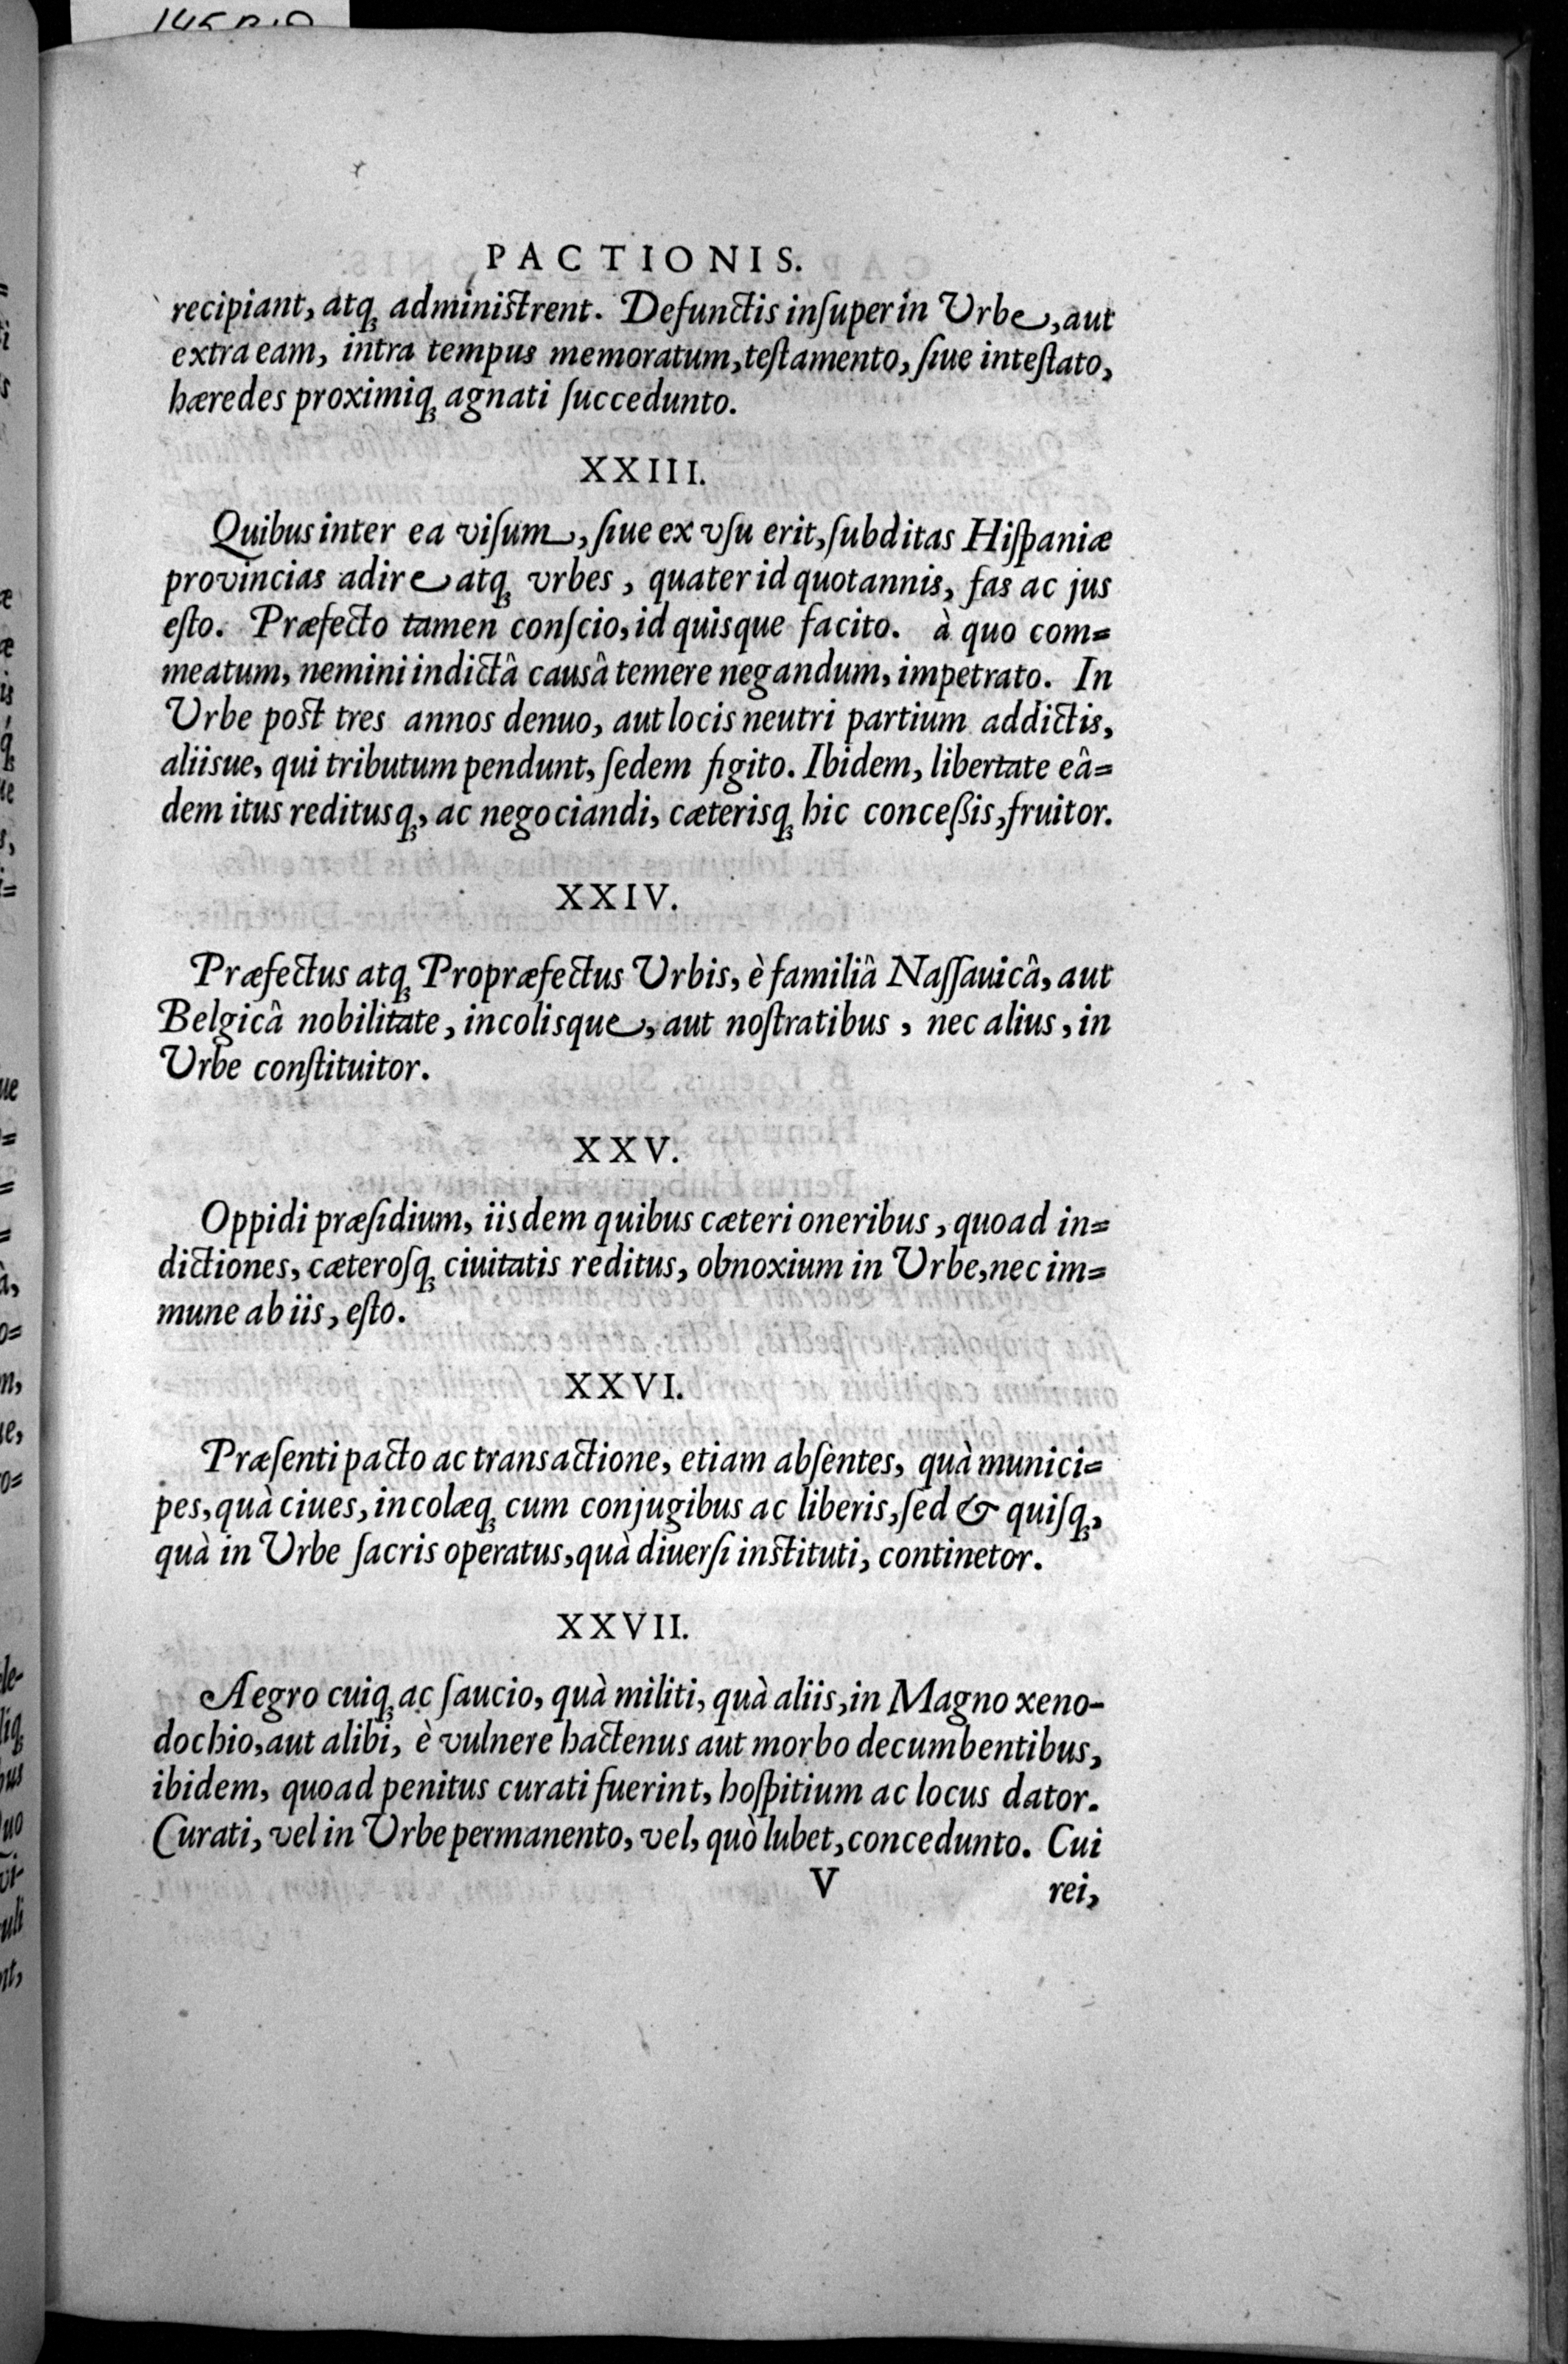 PACTIONIS.
recipiant, atq; administrent. Defunctis inſuper in Urbe, aut
extra eam, intra tempus memoratum, teſtamento, ſiue inteſtato,
hæredes proximiq; agnati ſuccedunto.
XXIII.
Quibus inter ea viſum, ſiue ex vſu erit, ſubditas Hiſpaniæ
provincias adire atq; vrbes, quater id quotannis, fas ac jus
eſto. Præfecto tamen conſcio, id quisque facito. à quo com=
meatum, nemini indictâ causâ temere negandum, impetrato. In
Urbe post tres annos denuo, aut locis neutri partium addictis,
aliisue, qui tributum pendunt, ſedem figito. Ibidem, libertate eâ=
dem itus reditusq;, ac negociandi, cæterisq; hic conceßis, fruitor.
XXIV.
Præfectus atq; Propræfectus Urbis, è familiâ Naſſauicâ, aut
Belgicâ nobilitate, incolisque, aut noſtratibus, nec alius, in
Urbe conſtituitor.
XXV.
Oppidi præſidium, iisdem quibus cæteri oneribus, quoad in=
dictiones, cæteroſq; ciuitatis reditus, obnoxium in Urbe, nec im=
mune ab iis, eſto.
XXVI.
Præſenti pacto ac transactione, etiam abſentes, quà munici=
pes, quà ciues, incolæq; cum conjugibus ac liberis, ſed & quiſq;,
quà in Urbe ſacris operatus, quà diuerſi instituti, continetor.
XXVII.
Aegro cuiq; ac ſaucio, quà militi, quà aliis, in Magno xeno-
dochio, aut alibi, è vulnere hactenus aut morbo decumbentibus,
ibidem, quoad penitus curati fuerint, hoſpitium ac locus dator.
Curati, vel in Urbe permanento, vel, quò lubet, concedunto. Cui
V rei,